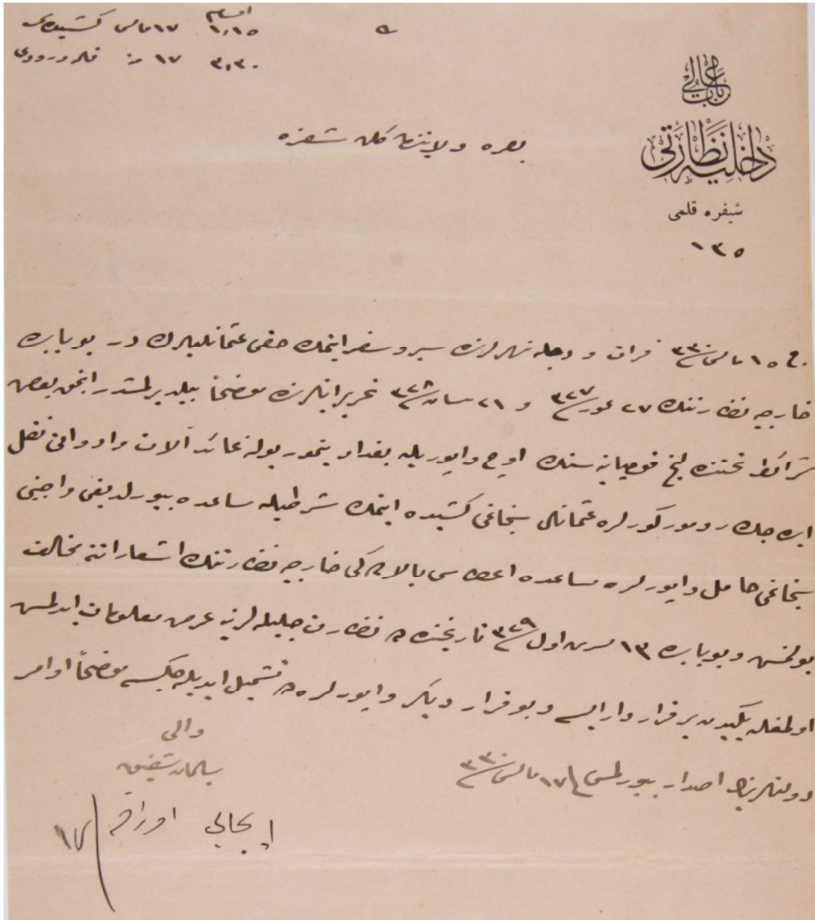 باب عالی
داخلیه نظارتی
شیفره قلمی
١٣٥
اقسام
١،١٥ ١٧ مایس کشیده سی
٣،٣٠ ١٧ منه قلمه ورودی
بصره ولایتندن کلن شفره
ج ١٥ مایس ٣٣٠ فرات و دجله نهرلرنده سیر و سفر ایتمك حقی عثمانلیلرك در بو بابده
خارجیه نظارتنك ٢٧ تموز ٣٢٧ و ٢١ نیسان ٣٢٨ تحریراتلرنده موضحاً بیلدیرلمشدر انجق بعض
شرائط تحتنده لنج قومپانیه سنك اوچ واپوریله بغداد تیمور یولنه عائد آلات و ادواتی نقل
ایده جك رومورکورلره عثمانلی سنجاغی کشیده ایتمك شرطیله مساعده بیورلدیغی و اجنبی
سنجاغی حامل واپورلره مساعده اعطاسی بالاده کی خارجیه نظارتنك اشعاراتنه مخالف
بولنمش و بو بابده ١٣ تشرین اول ٣٢٩ تاریخنده نظارت جلیله لرینه عرض معلومات ایدلمش
اولمغله یکیدن بر قرار وار ایسه و بو قرار دیکر واپورلره ده تشمیل ایدیله جکسه موضحاً اوامر
دولتلرینك اصدار بیورلمسی ١٧ مایس ٣٣٠
والی
سلیمان شفیق
ایجابی اوراق
١٧